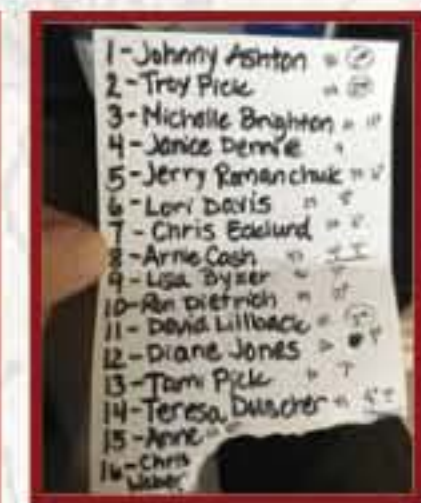 1-Johnny Ashton "
2-Troy Pick "
3-Michelle Brighton "
4-Janice Dennie "
5-Jerry Romanchuk "
6-Lori Davis "
7-Chris "
8-Arnie Cash "
9-Lisa "
10-Ron Dietrich "
11-David Lillback "
12-Diane Jones "
13-Tami Pick "
14-Teresa "
15-Anne "
16-Chris
Weber